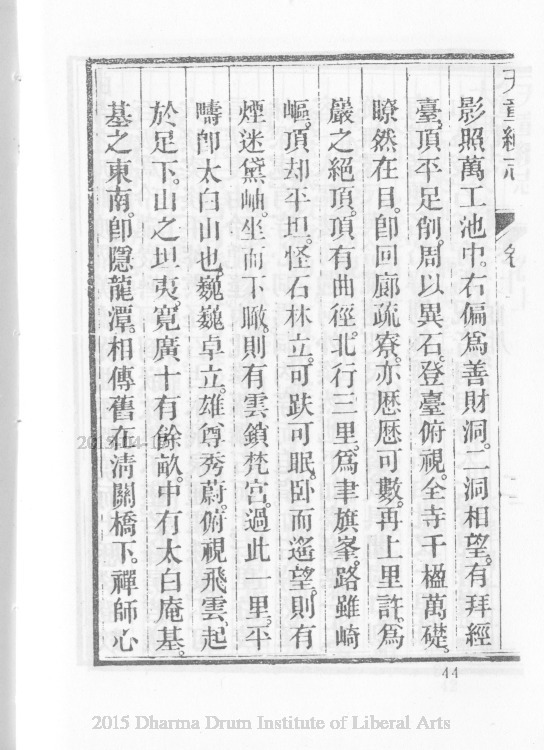 天童續志
卷
影照萬工池中。右偏爲善財洞。二洞相望。有拜經
臺。頂平足削。周以異石。登臺俯視。全寺千楹萬礎。
瞭然在目。卽回廊疏寮。亦歷歷可數。再上里許。爲
巖之絕頂。頂有曲徑。北行三里。爲聿旗峯。路雖崎
嶇。頂却平坦。怪石林立。可趺可眠。卧而遙望。則有
煙迷黛岫。坐而下瞰。則有雲鎖梵宮。過此一里。平
疇卽太白山也。巍巍卓立。雄尊秀蔚。俯視飛雲。起
於足下。山之坦夷。寬廣十有餘畝。中有太白庵基。
基之東南。卽隱龍潭。相傳舊在淸關橋下。禪師心
44
2015 Dharma Drum Institute of Liberal Arts